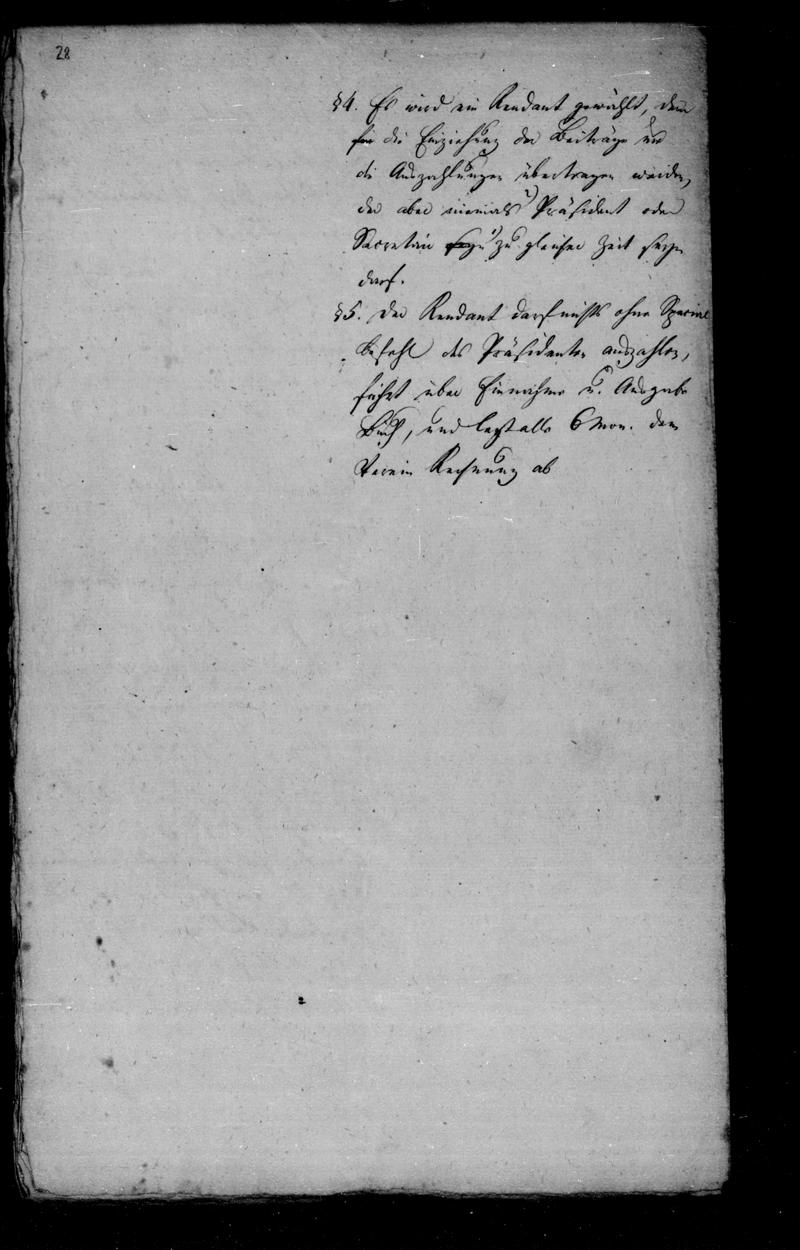 28
§4. Es wird ein Rendant gewählt, dem
die Einziehung der Beiträge und
die Auszahlungen übertragen werden,
der aber niemals Präsident oder
Secretär zu gleicher Zeit seyn
darf.
§5. Der Rendant darf nichts ohne Special
befehl des Präsidenten auszahlen,
führt über Einnahme u. Ausgabe
Buch, und legt alle 6 Mon. dem
Verein Rechnung ab